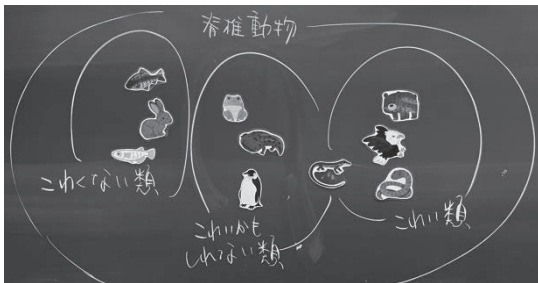 脊椎動物
こわくない類
こわいかも
しれない類
こわい類